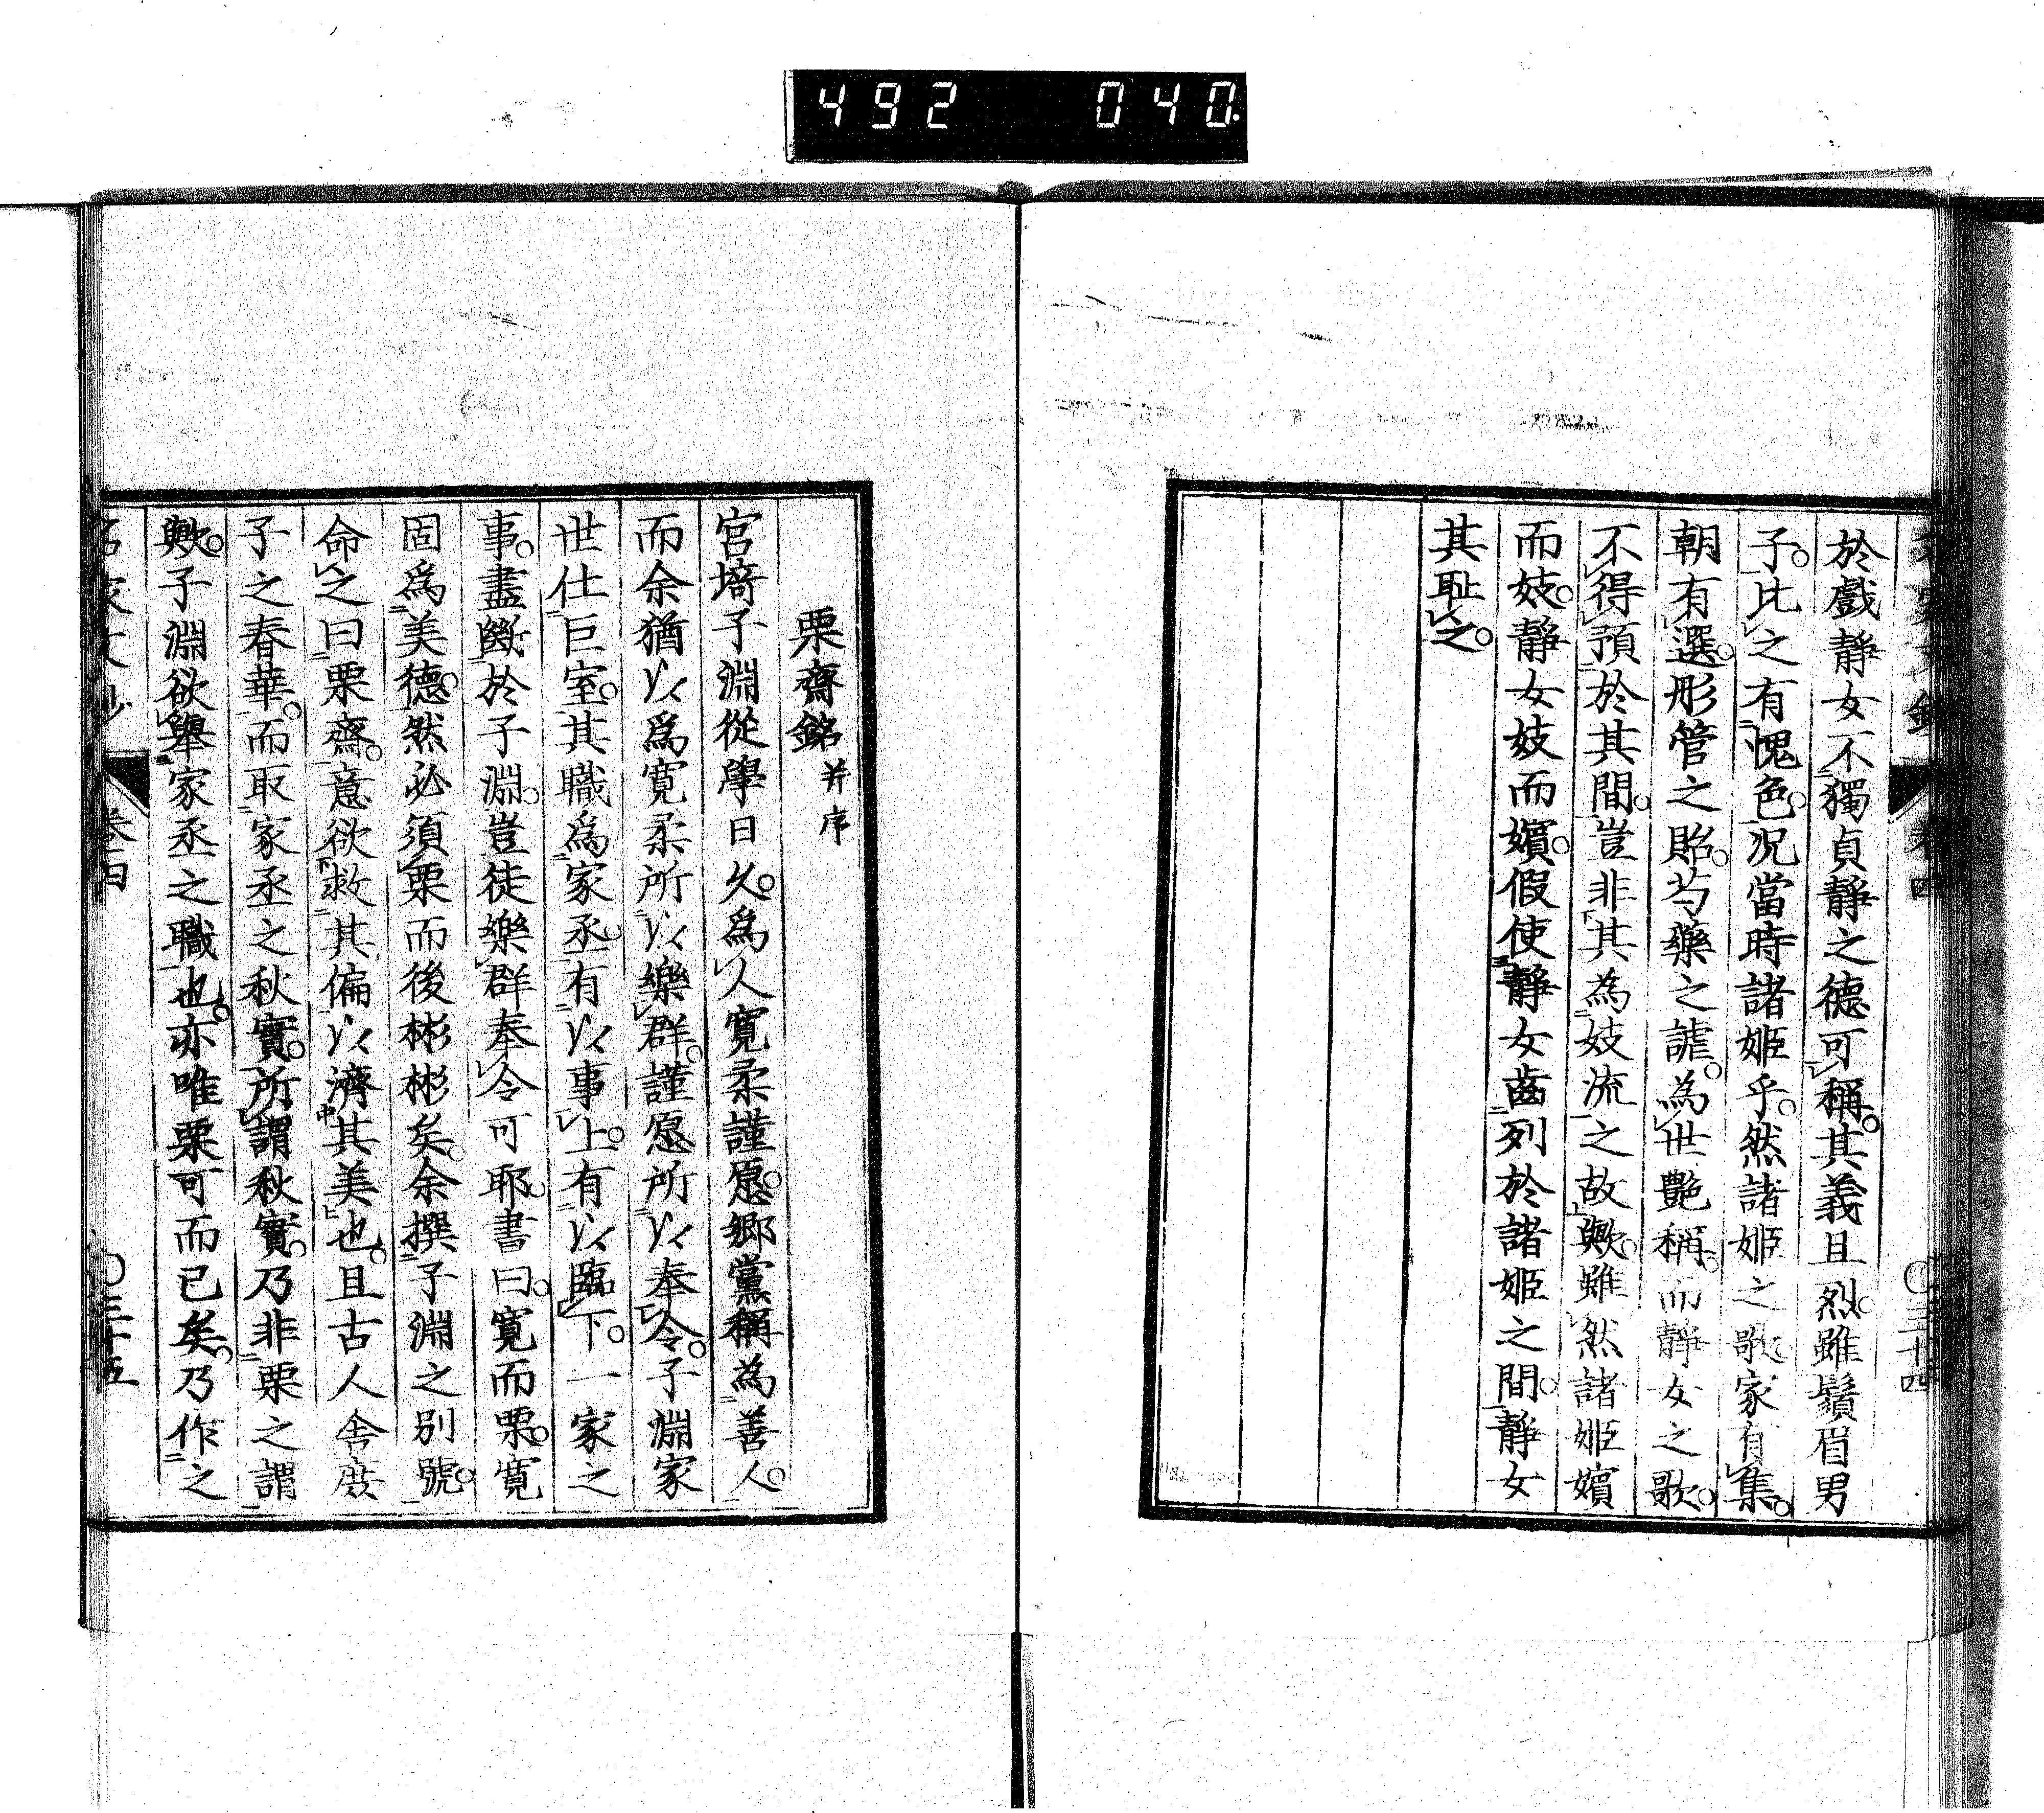 492 040
於戲靜女不獨貞靜之德可稱。其義且烈。雖鬚眉男
子。比之有愧色。況當時諸姬乎。然諸姬之歌。家有集。
朝有選。彤管之貽。芍藥之謔。為世艷稱。而靜女之歌。
不得預於其間。豈非其為妓流之故歟。雖然諸姬嬪
而妓。靜女妓而嬪。假使靜女齒列於諸姬之間。靜女
其耻之。
栗齋銘并序
宮埼子淵從學日久。爲人寬柔謹愿。鄉黨稱為善人。
而余猶以爲寬柔所以樂群。謹愿所以奉令。子淵家
世仕巨室。其職爲家丞。有以事上。有以臨下。一家之
事。盡斷於子淵。豈徒樂群奉令可耶。書曰。寬而栗。寬
固爲美德。然必須栗而後彬彬矣。余撰子淵之別號。
命之曰栗齋。意欲救其偏以濟其美也。且古人舍庶
子之春華。而取家丞之秋實。所謂秋實。乃非栗之謂
歟。子淵欲舉家丞之職也。亦唯栗可而已矣。乃作之
名家文抄 卷四 〇三十五